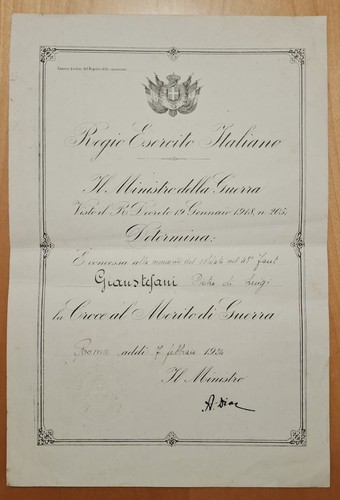 Regio Esercito Italiano
Il Ministro della Guerra
Visto il R. Decreto 19 Gennaio 1918, n. 205,
Determina:
È concessa alla memoria del soldato nel 43° Fant.
Gianstefani Pietro di Luigi
la Croce al Merito di Guerra
Roma addì 7 febbraio 1924
Il Ministro
A. Diaz